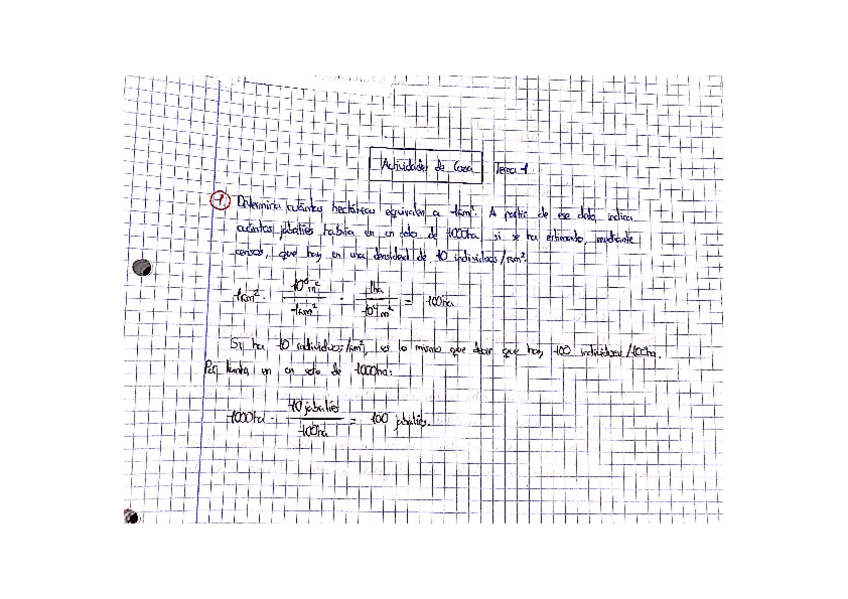 Actividades de Caza Tema 1
1 Determina cuántas hectáreas equivalen a 1km². A partir de ese dato, indica
cuántos jabalíes habría en un coto de 1000ha si se ha estimado, mediante
censos, que hay en una densidad de 10 individuos/km².
1km² · 10⁶m² / 1km² · 1ha / 10⁴m² = 100ha
Si ha 10 individuos/km², es lo mismo que decir que hay 100 individuos/100ha.
Por tanto, en un coto de 1000ha:
1000ha · 10 jabalíes / 100ha = 100 jabalíes.